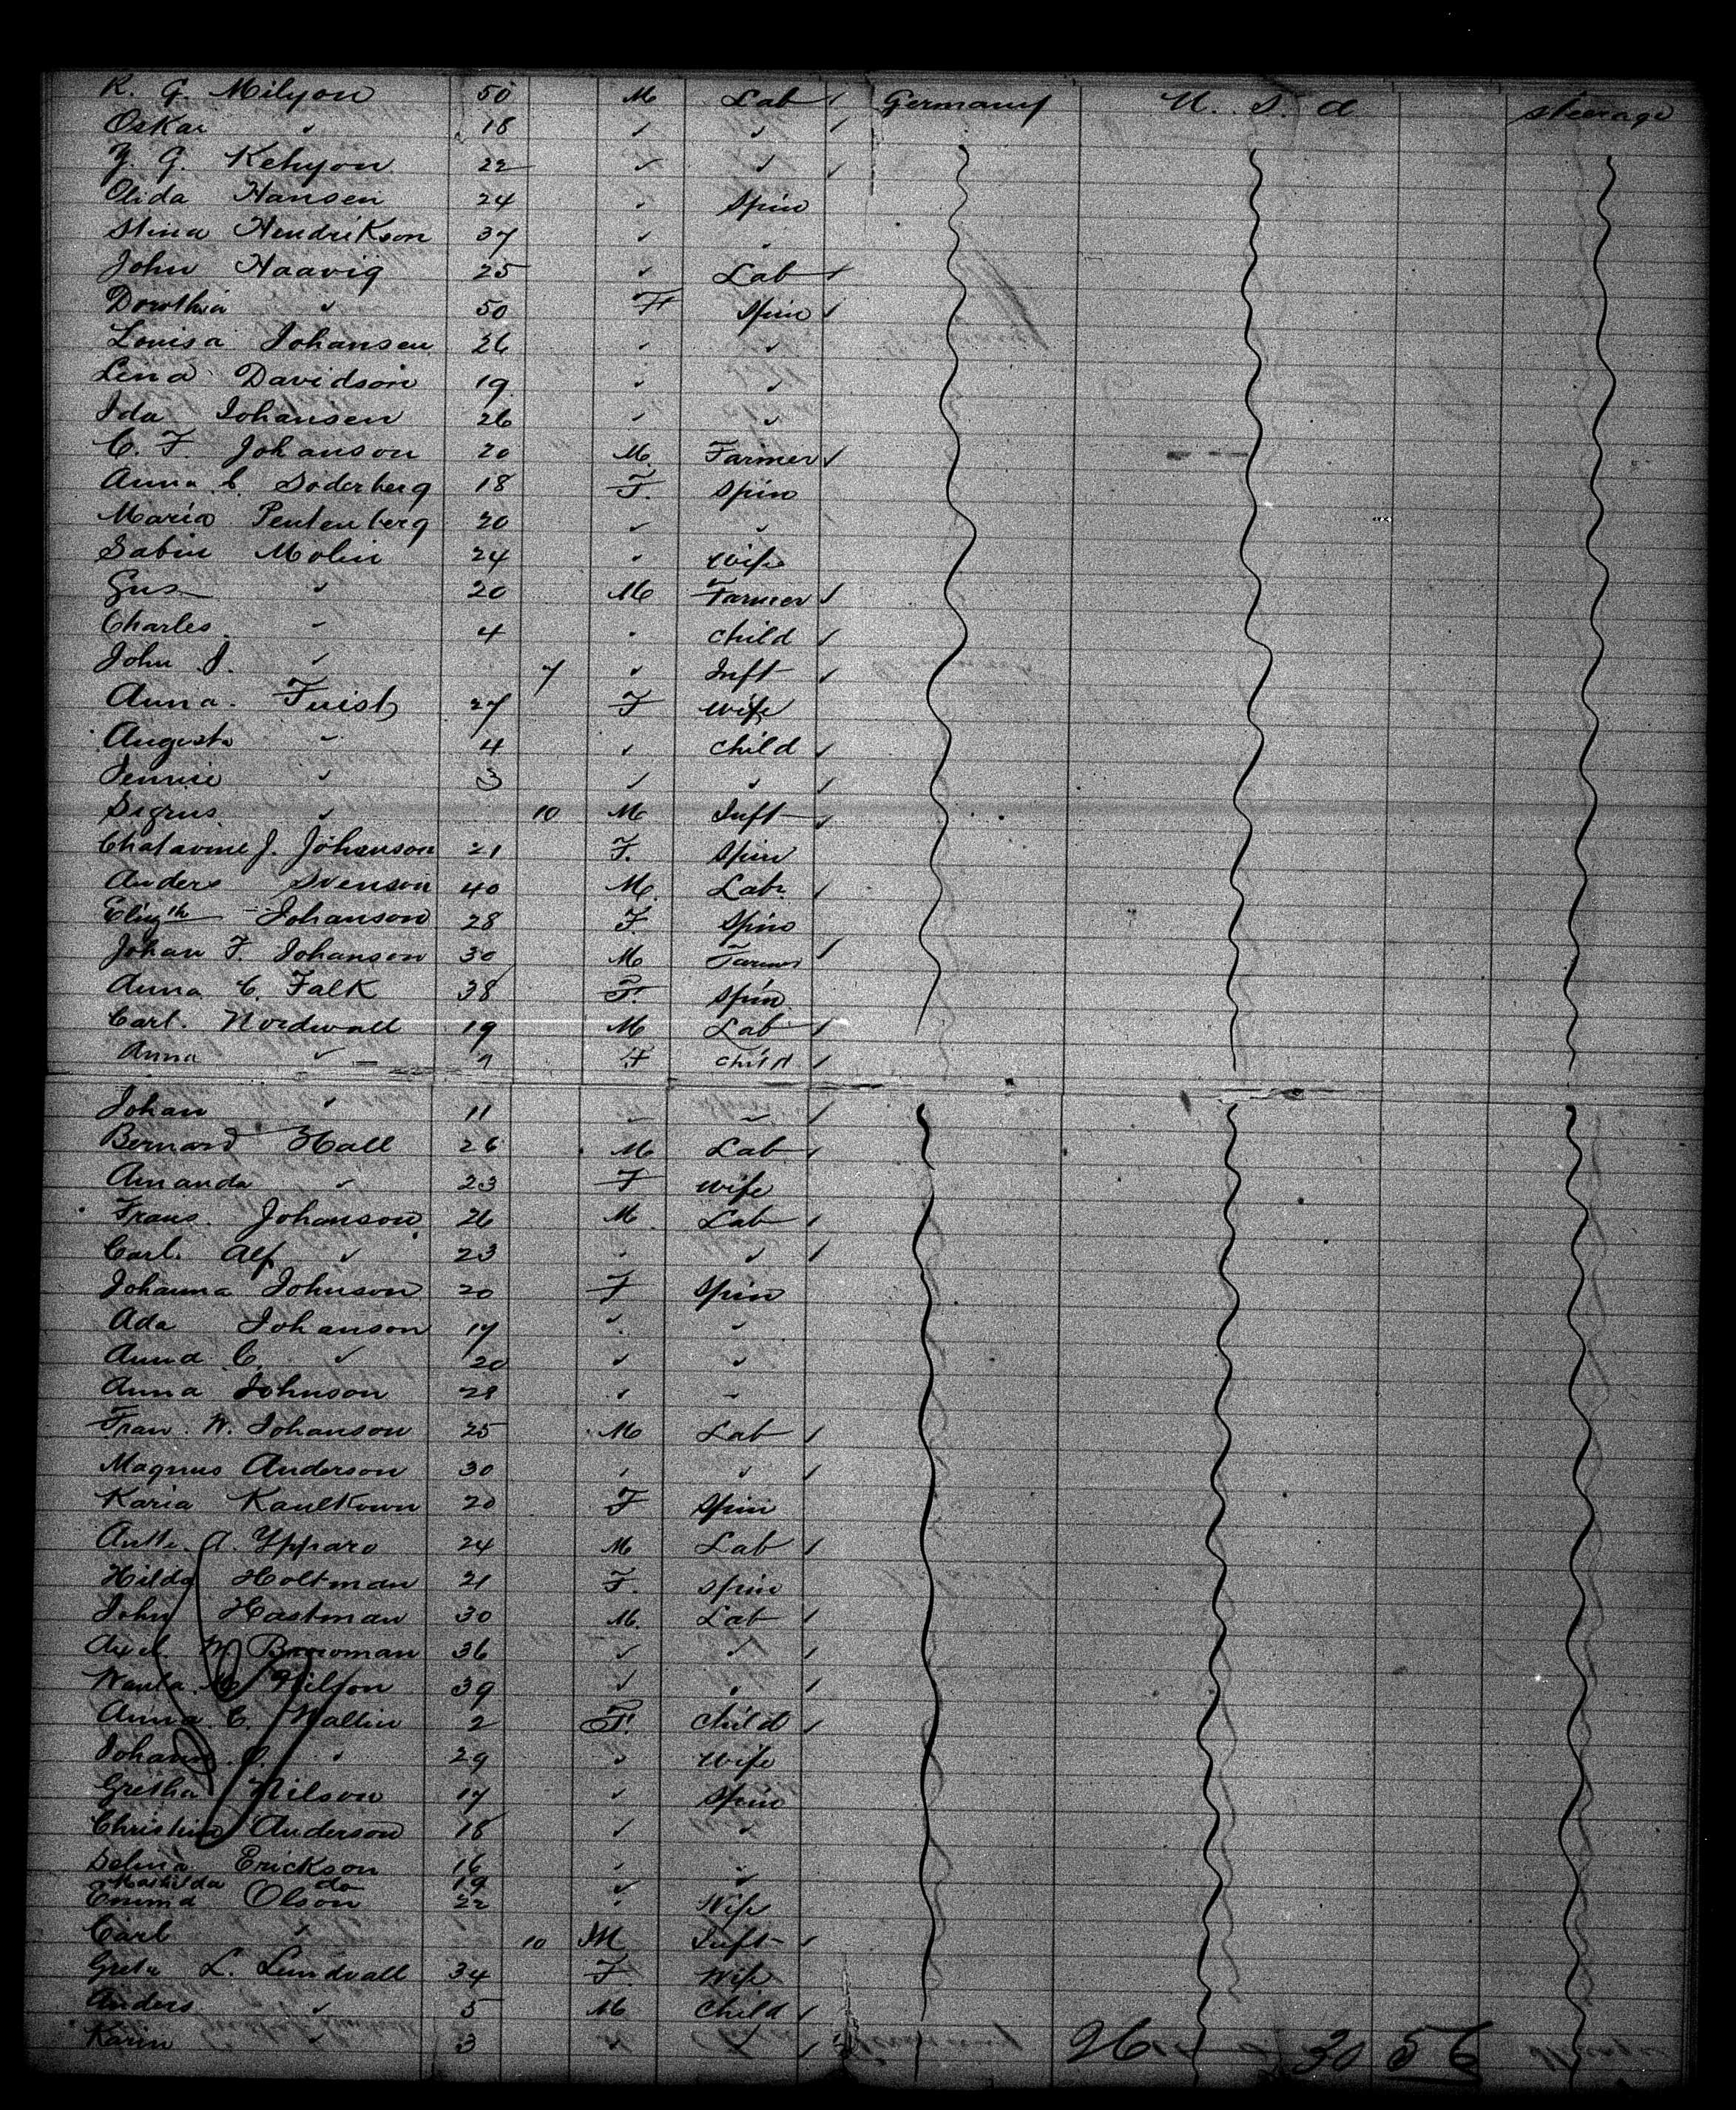 R. G. Milyon 50 M Lab ✓ Germany U. S. a steerage
Oskar ✓ 18 ✓ ✓ ✓
G. Kehyon 22 ✓ ✓ ✓
Elida Hansen 24 ✓ Spin
Stina Hendrikson 37 ✓ ✓
John Haavig 25 ✓ Lab ✓
Dorothia ✓ 50 F Spin ✓
Louisa Johansen 26 ✓ ✓
Lena Davidson 19 ✓ ✓
Ida Johansen 26 ✓ ✓
C. F. Johanson 20 M. Farmer ✓
Anna C. Soderberg 18 F. Spin
Maria Pentenberg 20 ✓ ✓
Sabin Molin 24 ✓ wife
Gus ✓ 20 M Farmer ✓
Charles ✓ 4 ✓ child ✓
John J. ✓ 7 ✓ Inft ✓
Anna. 27 F wife
Augusta ✓ 4 ✓ child ✓
Jennie ✓ 3 ✓ ✓ ✓
Sigrus ✓ 10 M Inft ✓
J. Johanson 21 F. Spin
Anders Svenson 40 M. Labr ✓
Elizth Johanson 28 F. Spin
Johan F. Johanson 30 M Farmer ✓
Anna C. Falk 38 F. Spin
Carl. Nordwall 19 M Lab ✓
Anna ✓ F child ✓
Johan ✓ 11 ✓ ✓ ✓
Bernard Hall 26 M Lab ✓
Amanda ✓ 23 F wife
Frans. Johanson 26 M. Lab ✓
Carl. Alf ✓ 23 ✓ ✓ ✓
Johanna Johnson 20 F Spin
Ada Johanson 17 ✓ ✓
Anna C. ✓ 20 ✓ ✓
Anna Johnson 28 ✓ ✓
Fran. W. Johanson 25 M Lab ✓
Magnus Anderson 30 ✓ ✓ ✓
Karia 20 F Spin
A. 24 M Lab ✓
Hilda Holtman 21 F. Spin
John Hastman 30 M. Lab ✓
Axel. W 36 ✓ ✓ ✓
Nilson 39 ✓ ✓ ✓
Anna C. Wallin 2 F. child ✓
Johana C. ✓ 29 ✓ wife
Gretha Nilson 17 ✓ Spin
Christina Anderson 18 ✓ ✓
Selma Erickson 16 ✓ ✓
Mathilda do 19 ✓ ✓
Emma Olson 22 ✓ Wife
Carl ✓ 10 M Inft ✓
Greta L. Lundvall 34 F Wife
Anders ✓ 5 M Child ✓
Karin ✓ 3 ✓ ✓ ✓ 26 30 56